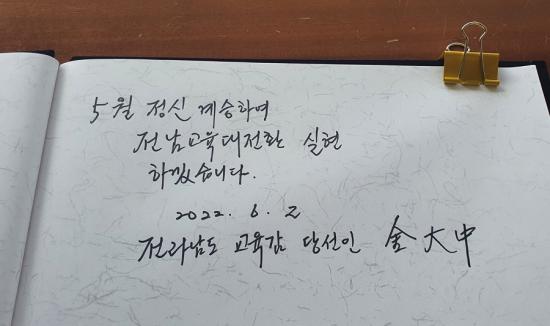 5월 정신 계승하며
전남교육대전환 실현
하겠습니다.
2022. 6. 2
전라남도 교육감 당선인 金大中